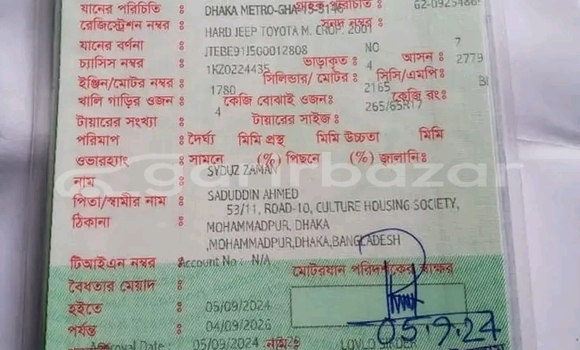 যানের পরিচিতি : DHAKA METRO-GHA-15-5146 শ্রেণীক পরিচিতি : 62-0925486
রেজিস্ট্রেশন নম্বর : সনদ নম্বর :
যানের বর্ণনা : HARD JEEP TOYOTA M. CROP. 2001
চ্যাসিস নম্বর : JTEBE91J500012808 ভাড়াকৃত : NO আসন : 7
ইঞ্জিন/মোটর নম্বর : 1KZ0224435 সিলিন্ডার/ মোটর : 4 সিসি/এমপি: 2779
খালি গাড়ির ওজন : 1780 কেজি বোঝাই ওজন: 2165 কেজি রং:
টায়ারের সংখ্যা : 4 টায়ারের সাইজ : 265/65R17
পরিমাপ : দৈর্ঘ্য মিমি প্রস্থ মিমি উচ্চতা মিমি
ওভারহ্যাং : সামনে (%) পিছনে (%) জ্বালানি :
নাম : SYDUZ ZAMAN
পিতা/স্বামীর নাম : SADUDDIN AHMED
ঠিকানা : 53/11, ROAD-10, CULTURE HOUSING SOCIETY,
MOHAMMADPUR, DHAKA
,MOHAMMADPUR,DHAKA,BANGLADESH
টিআইএন নম্বর : Account No : N/A মোটরযান পরিদর্শকের স্বাক্ষর
বৈধতার মেয়াদ :
হইতে : 05/09/2024
পর্যন্ত : 04/09/2026
05.9.24
Approval Date : 05/09/2024 নাম :
garirbazar